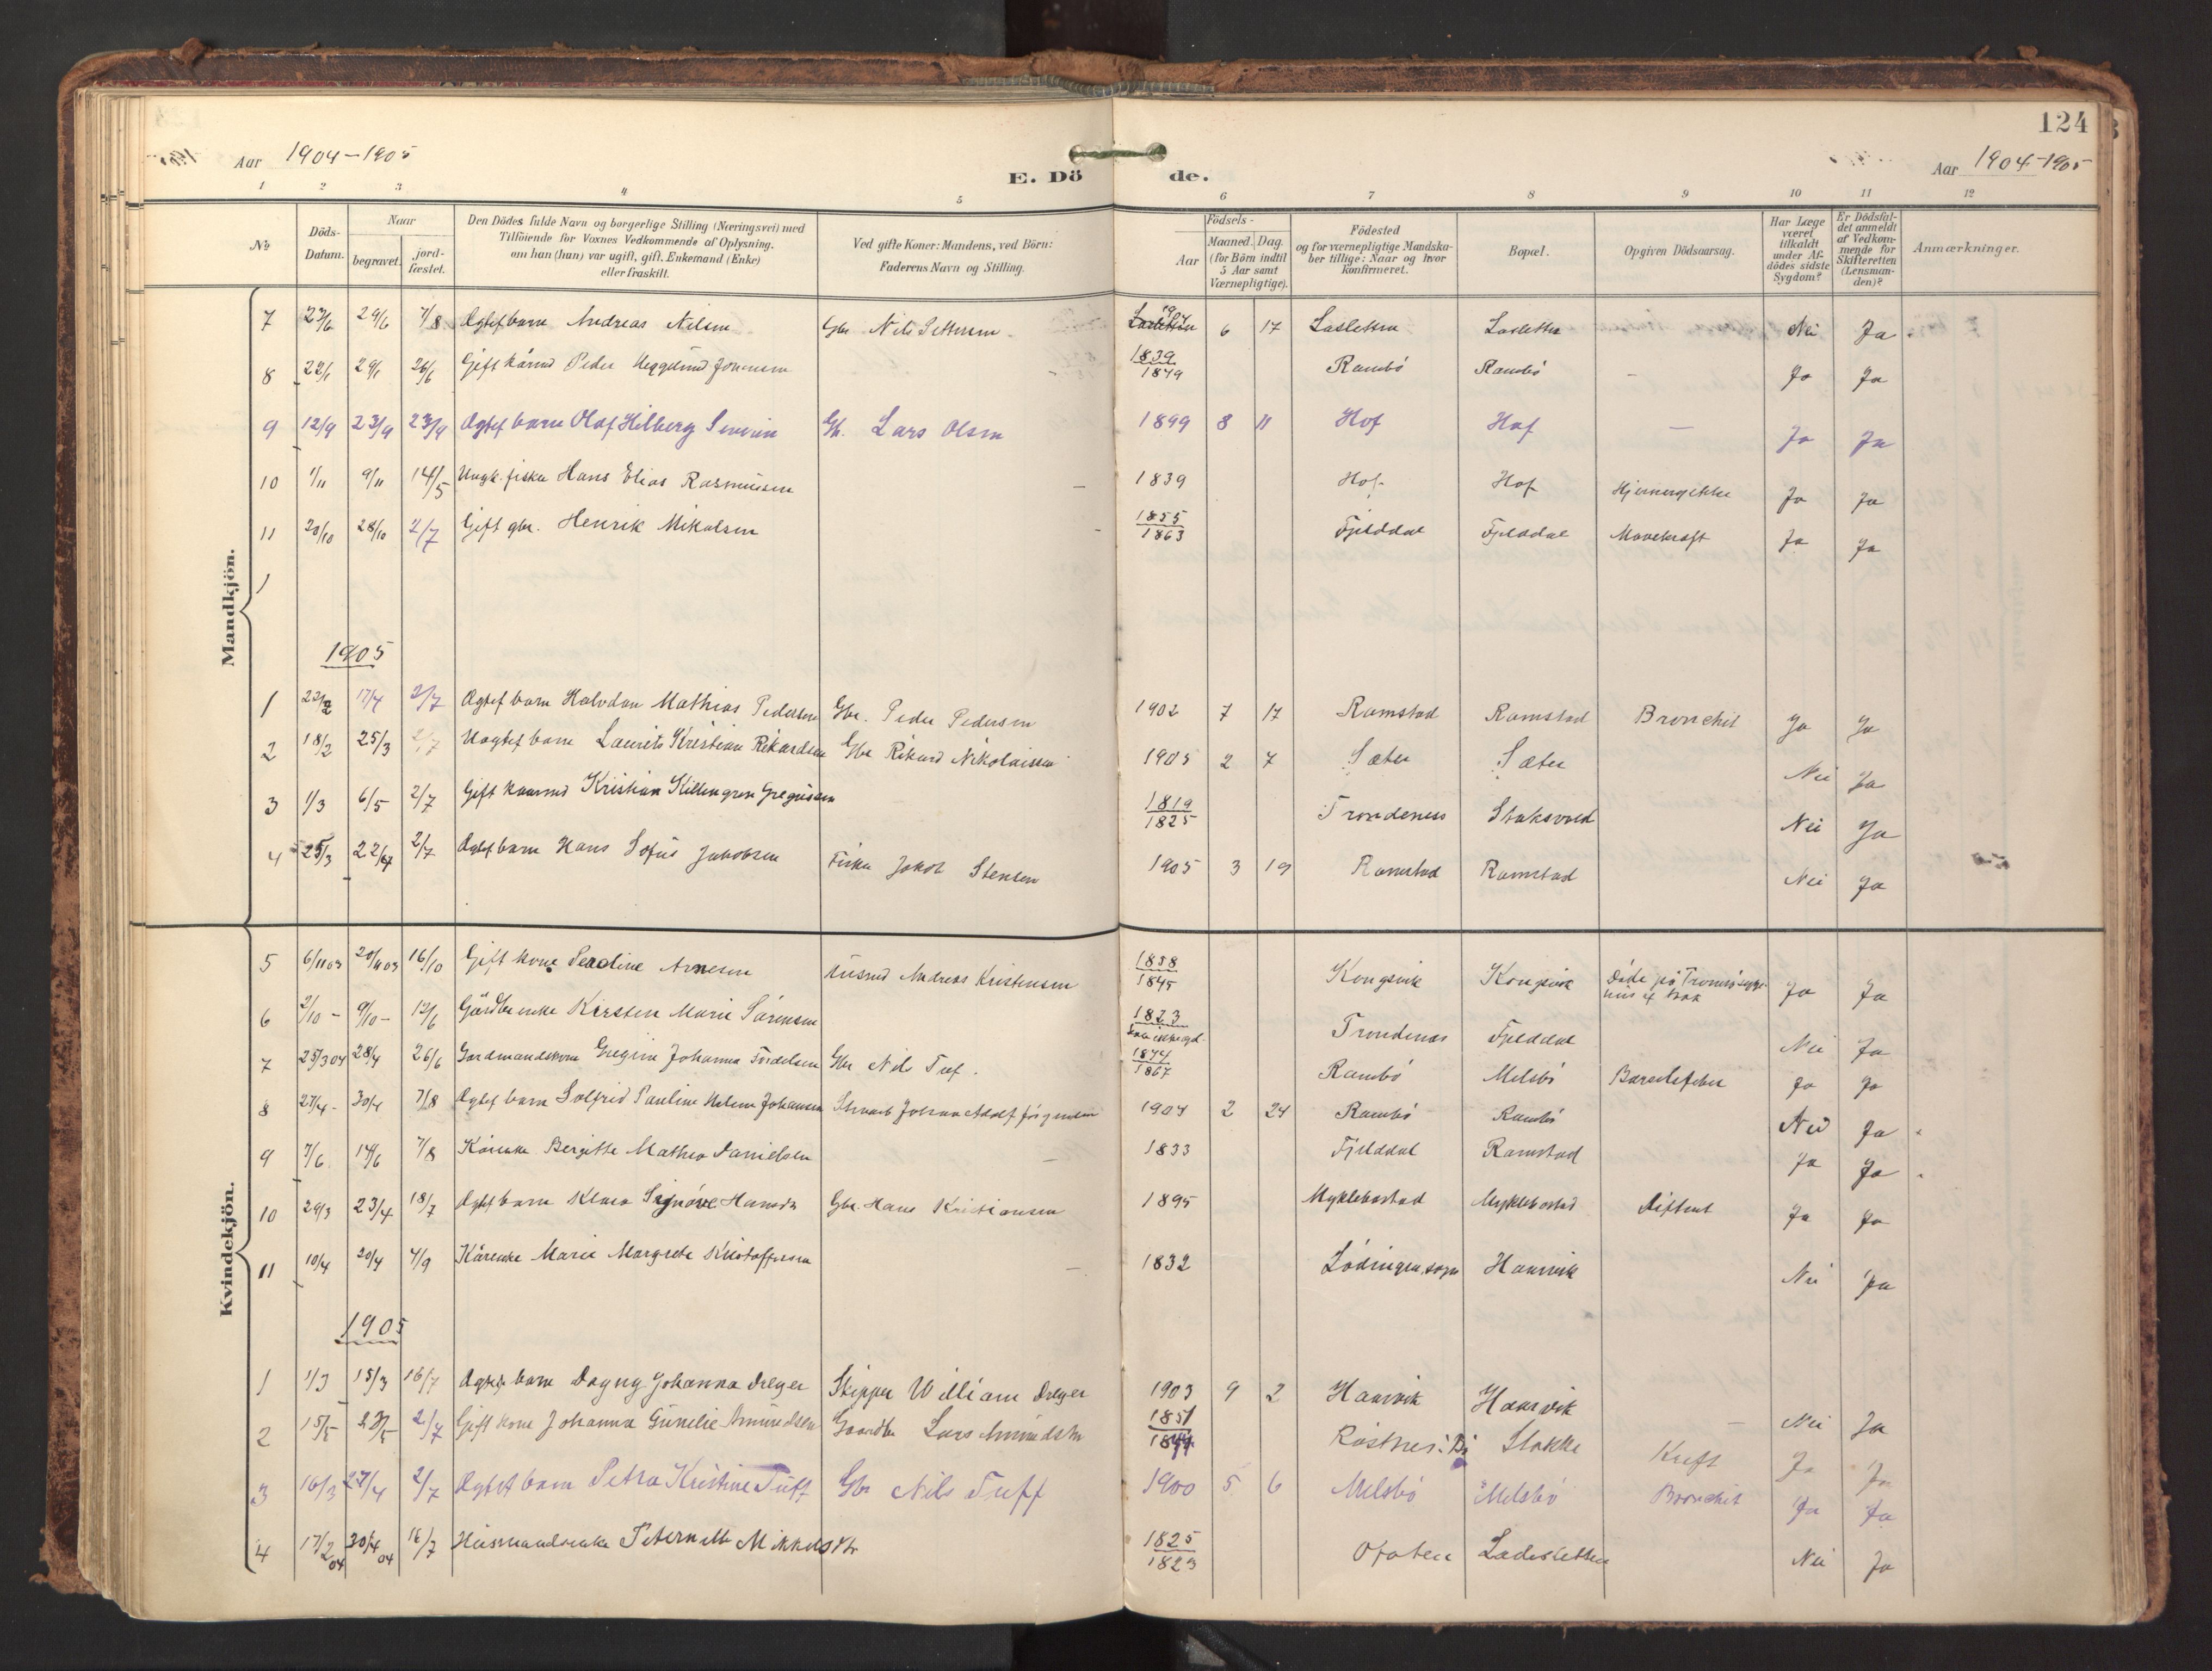 124
Aar 1904-1905
E. Dö
de.
Aar 1904-1905
1 2 3 4 5 6 7 8 9 10 11 12
№
Döds-
Datum.
Naar
begravet.
jord-
fæstet.
Den Dödes fulde Navn og borgerlige Stilling (Næringsvei) med
Tilföiende for Voxnes Vedkommende af Oplysning.
om han (hun) var ugift, gift, Enkemand (Enke)
eller fraskilt.
Ved gifte Koner: Mandens, ved Börn:
Faderens Navn og Stilling.
Födsels-
Aar
Maaned. Dag.
(for Börn indtil
5 Aar samt
Værnepligtige).
Födested
og for værnepligtige Mandska-
ber tillige: Naar og hvor
konfirmeret.
Bopæl.
Opgiven Dödsaarsag.
Har Læge
været
tilkaldt
under Af-
dödes sidste
Sygdom?
Er Dödsfal-
det anmeldt
af Vedkom-
mende for
Skifteretten
(Lensman-
den)?
Anmærkninger.
Mandkjön.
7 23/6 29/6 7/8 Ægtef barn Andreas Nilsen Gbr Nils Pettersen 6 17 Lasletten Lasletten Nei Ja
8 29/1 26/6 Gift kårmd Peder Heggelund Johansen 1839 1849 Rambö Rambö – Ja Ja
9 12/9 23/9 23/9 Ægtef barn Olaf Hilberg Severin Gb. Lars Olsen 1899 8 11 Hof Hof – Ja Ja
10 1/11 9/11 14/5 Ungk. fisker Hans Elias Rasmussen – 1839 Hof Hof Ja Ja
11 20/10 28/10 2/7 Gift gbr. Henrik Mikalsen – 1855 1863 Fjelddal Fjelddal Mavekræft Ja Ja
1
1905
1 22/2 17/4 2/7 Ægtef barn Halvdan Mathias Pedersen Gbr. Peder Pedersen 1902 7 17 Ramstad Ramstad Bronchit Ja Ja
2 18/2 25/3 2/7 Uægtef barn Laurits Kristian Rikardsen Gbr Rikard Nikolaisen 1905 2 7 Sæter Sæter Nei Ja
3 1/3 6/5 2/7 Gift kaarmd Kristian Killengren Gregusen 1819 1825 Trondenes Staksvold Nei Ja
4 25/3 22/4 2/7 Ægtef barn Hans Sofus Jakobsen Fisker Jakob Stensen 1905 3 19 Ramstad Ramstad Nei Ja
Kvindekjön.
5 6/11 03 20/11 03 16/10 Gift kone Peroline Arnesen Husmd Andreas Kristensen 1858 1845 Kongsvik Kongsvik Döde på Tromsö syge-
hus af brok Ja Ja
6 2/10 – 9/10 – 12/6 Gårdbr enke Kirsten Marie Sörensen 1823 Trondenes Fjelddal Nei Ja
7 25/3 04 28/4 26/6 Gardmandskone Gregine Johanna Tordelsen Gbr Nils Tuf. 1874 1867 Rambö Melsbö Barselsfeber Ja Ja
8 27/4 – 30/4 7/8 Ægtef barn Solfrid Pauline Helene Johansen Johan Adolf Jörgensen 1904 2 24 Rambö Rambö Nei Ja
9 7/6 14/6 7/8 Kårenke Bergitte Mathea Danielsen – 1833 Fjelddal Ramstad Ja Ja
10 29/3 23/4 18/7 Ægtef barn Klara Signöve Hansdr Gbr. Hans Kristiansen 1895 Myklebostad Myklebostad Difterit Ja Ja
11 10/4 20/4 4/9 Kårenke Marie Margrete Kristoffersen – 1832 Lödingen sogn Haarvik Nei Ja
1905
1 1/3 15/3 16/7 Ægtef barn Dagny Johanna Dreyer Skipper William Dreyer 1903 9 2 Haarvik Haarvik – Nei Ja
2 15/5 23/5 2/7 Gift kone Johanna Gunelie Amundsen Gaardbr Lars Amundsen 1851 Stokke Kræft Ja Ja
3 16/3 27/4 2/7 Ægtef barn Petra Kristine Tuff Gbr Nils Tuff 1900 5 6 Melsbö Melsbö Bronchit Ja Ja
4 17/2 04 30/4 04 16/7 Husmandsenke Peternelle Mikkelsdtr 1825 1823 Ofoten Ladesletten Nei Ja